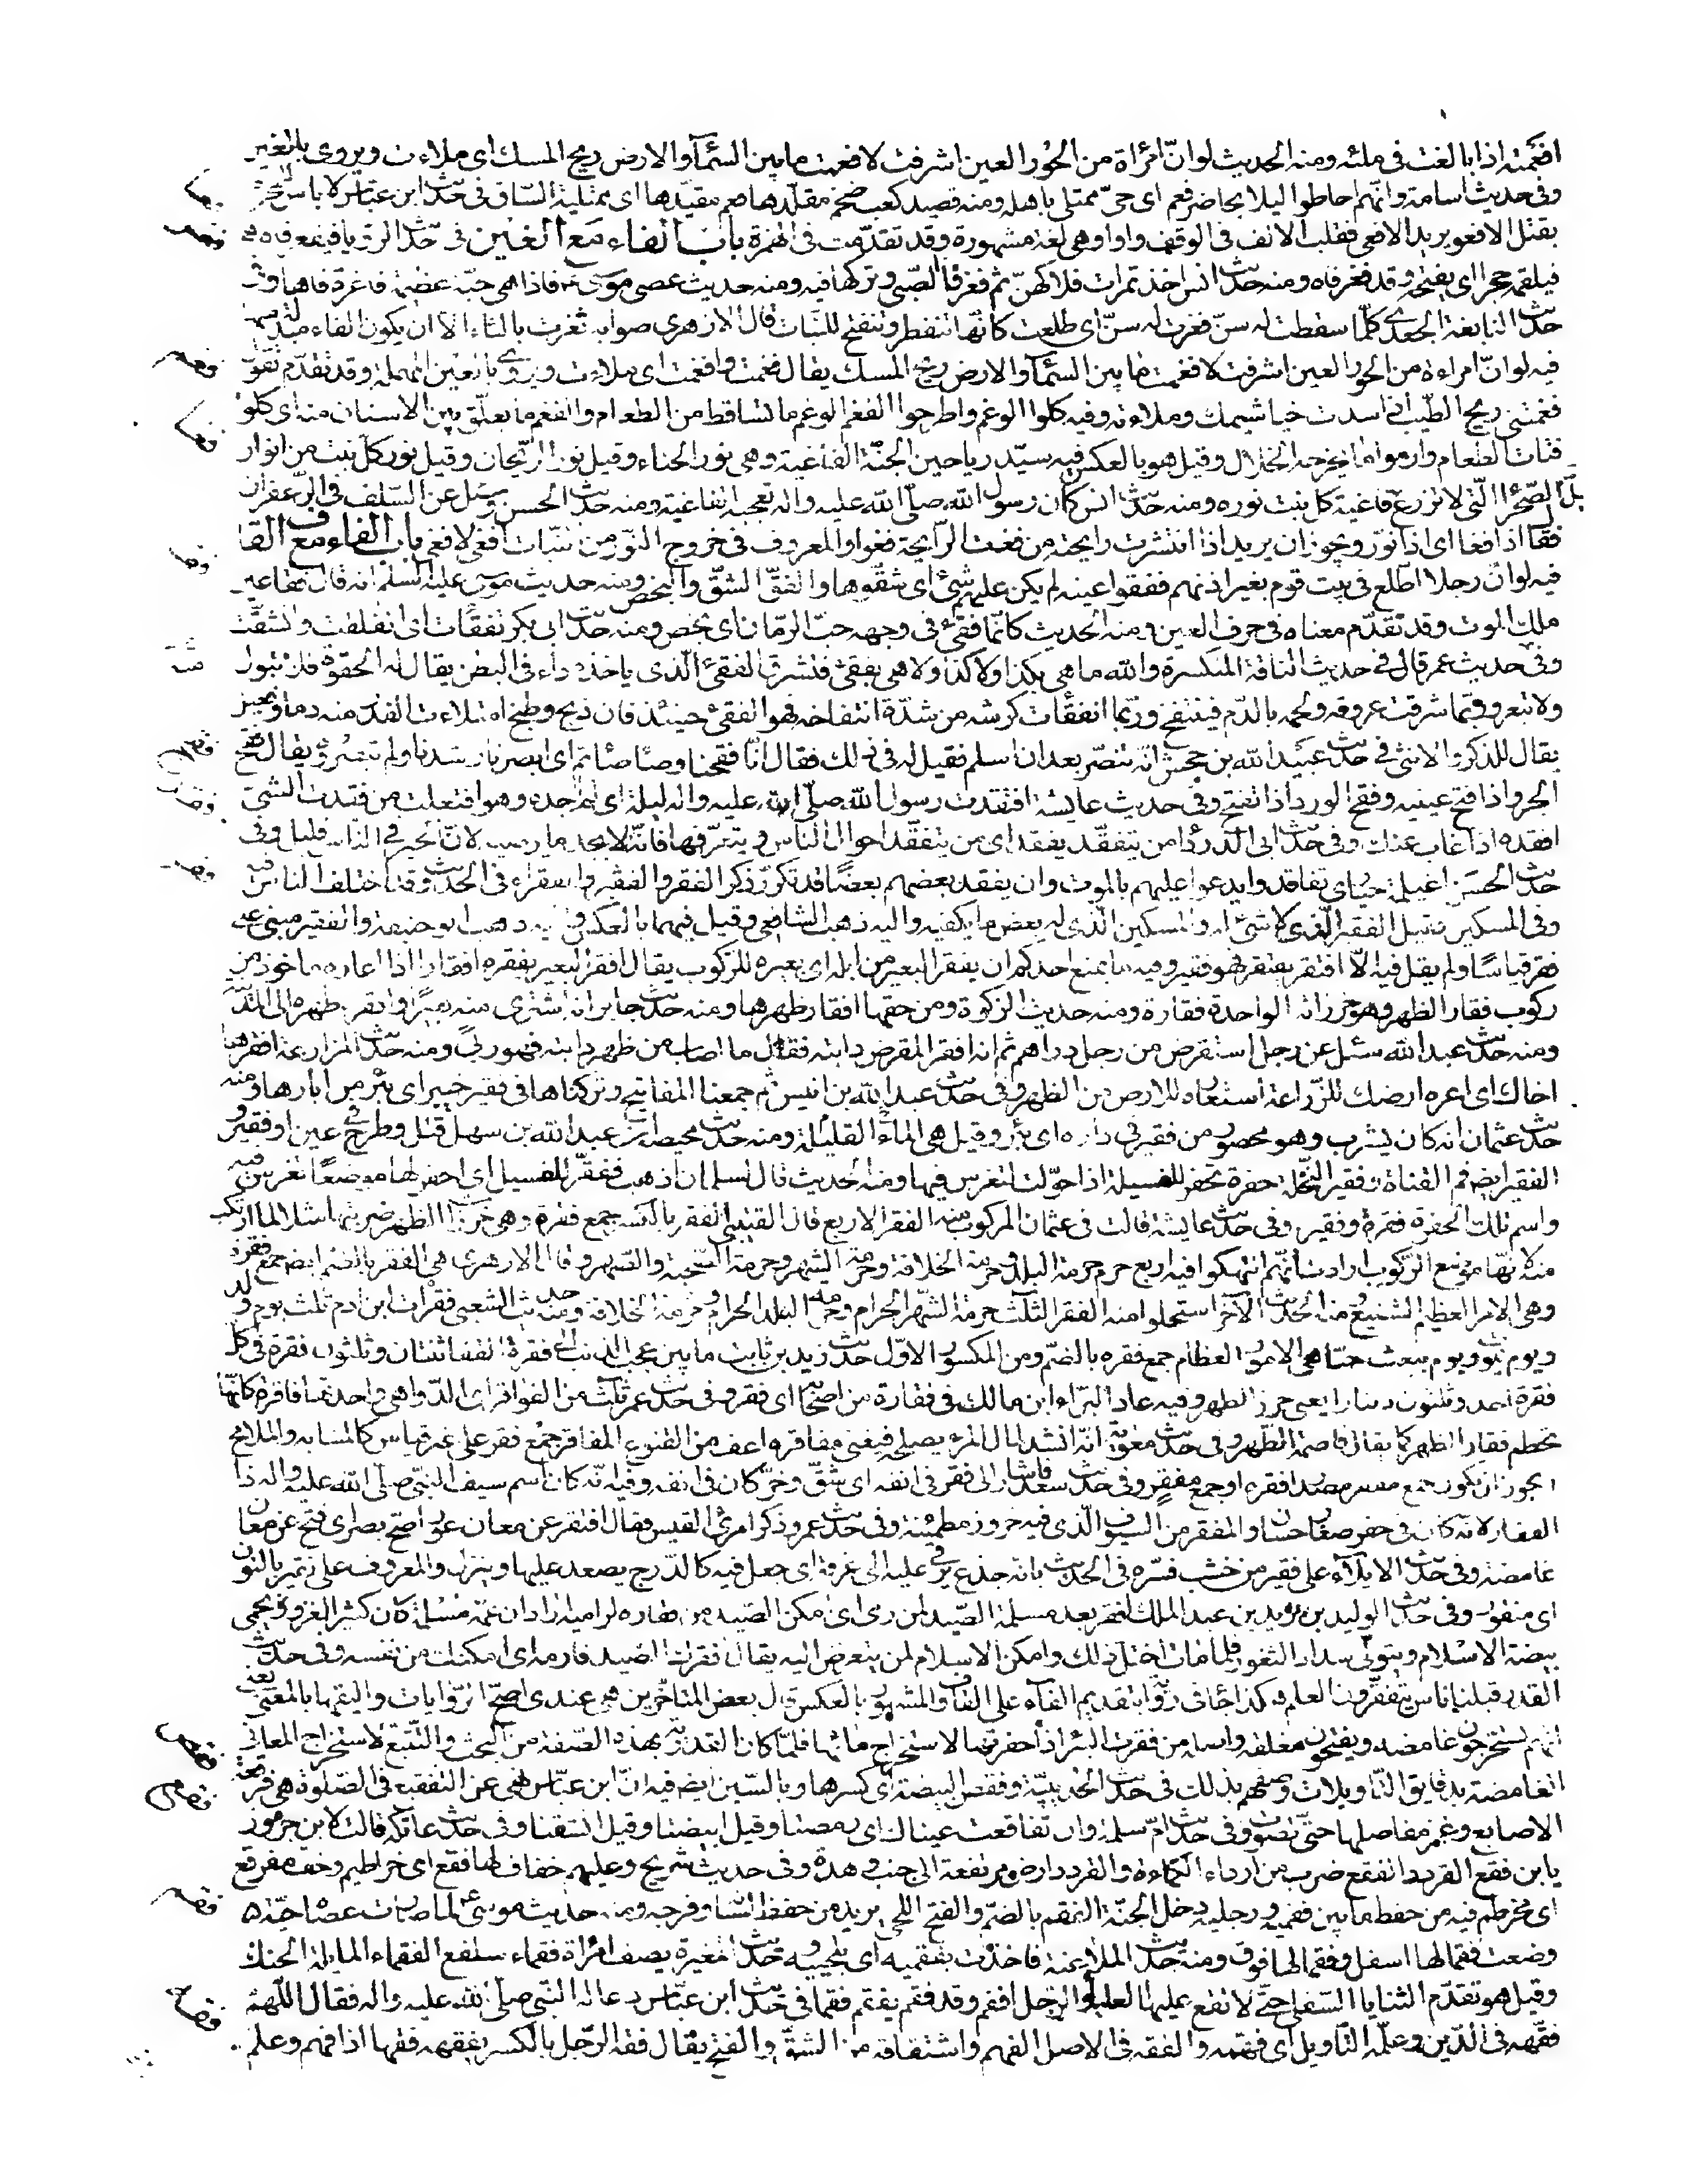 افعمته اذا بالغت فى ملئه ومنه الحديث لو انّ امرأة من الحور العين اشرفت لافعمت ما بين السّمآء والارض ريح المسك اى ملاءت ويروى بالغين
وفى حديث اسامة وانّهم احاطوا ليلا بحاضر فعم اى حىّ ممتلى باهله ومنه قصيد كعب ضخم مقلّدها فعم مقيّدها اى ممتلية السّاق فى حديث ابن عبّاس لا باس
بقتل الافعو يريد الافعى فقلب الالف فى الوقف واوا وهى لغة مشهورة وقد تقدّمت فى الهمزة باب الفاء مع الغين فى حديث الرؤيا فيفغر فاه
فيلقمه حجرا اى يفتحه وقد فغر فاه ومنه حديث انس اخذ تمرات فلاكهنّ ثم فغر فا الصّبى وتركها فيه ومنه حديث عصى موسى فاذا هى حيّة عظيمة فاغرة فاها
حديث النابغة الجعدى كلّما سقطت له سنّ فغرت له سنّ اى طلعت كانّها تتفطر وتتفتح للنبات قال الازهرى صوابه ثغرت بالثاء الا ان يكون الفاء مبدلة
فيه لو انّ امراءة من الحور العين اشرفت لافغمت ما بين السّمآء والارض ريح المسك يقال فغمت وافغمت اى ملاءت ويروى بالعين المهملة وقد تقدّم تقول
فغمتنى ريح الطّيب اى سدت خياشيمك وملاءته وفيه كلوا الوغم واطرحوا الفغم الوغم ما تساقط من الطعام والفغم ما يعلّق بين الاسنان منه اى كلوا
فتات الطعام وارموا ما يخرجه الخلال وقيل هو بالعكس فيه سيّد رياحين الجنّة الفاغية وهى نور الحناء وقيل نور الرّيحان وقيل نور كل نبت من انوار
الصّحرا الّتى لا تزرع وقيل فاغية كل نبت نوره ومنه حديث انس كان رسول الله صلّى الله عليه واله تعجبه الفاغية ومنه حديث الحسن وسئل عن السّلف فى الزّعفران
فقال اذا فغا اى اذا نوّر ويجوز ان يريد اذا انتشرت رايحته من فغت الرّايحة فغوا والمعروف فى خروج النّور من النبات افغى لا فغى باب الفاء مع القاف
فيه لو انّ رجلا اطّلع فى بيت قوم بغير اذنهم ففقؤا عينه لم يكن عليهم شئ اى شقّوها والفقؤ الشقّ والبخص ومنه حديث موسى عليه السّلم انه فقأ عين
ملك الموت وقد تقدّم معناه فى حرف العين ومنه الحديث كانّما فقئ فى وجهه حبّ الرمّان اى بخص ومنه حديث ابى بكر تفقّأت اى انفلقت وانشقّت
وفى حديث عمر قال فى حديث الناقة المنكسرة والله ما هى بكذا ولا كذا ولا هى بفقئ فتشرق الفقئ الّذى ياخذه داء فى البطن يقال له الحقوة فلا تبول
ولا تبعر وربّما شرقت عروقه ولحمه بالدّم فينتفخ وربّما انفقأت كرشه من شدّة انتفاخه فهو الفقئ حينئذ فان ذبح وطبخ امتلاءت القدر منه دما وفعيل
يقال للذكر والانثى فى حديث عبيد الله بن جحش انه تنصّر بعد ان اسلم فقيل له فى ذلك فقال انّا فقّحنا وصأصأتم اى ابصرنا رشدنا ولم تبصروه يقال فقّح
الجرو اذا فتح عينيه وفقّح الورد اذا تفتح وفى حديث عايشة افتقدت رسول الله صلّى الله عليه واله ليلة اى لم اجده وهو افتعلت من فقدت الشئ
افقده اذا غاب عنك وفى حديث ابى الدّرداء من يتفقّد يفقد اى من يتفقّد احوال الناس ويتعرّفها فانّه لا يجد ما يرضيه لانّ الخير فى النّاس قليل وفى
حديث الحسن اغيلمة حيارى تفاقدوا يدعو عليهم بالموت وان يفقد بعضهم بعضًا قد تكرّر ذكر الفقر والفقير والفقراء فى الحديث وقد اختلف الناس فيه
وفى المسكين فقيل الفقير الّذى لا شئ له والمسكين الّذى له بعض ما يكفيه واليه ذهب الشافعى وقيل فيهما بالعكس واليه ذهب ابو حنيفة والفقير مبنى على
فقر قياسًا ولم يقل فيه الّا افتقر يفتقر فهو فقير وفيه ما يمنع احدكم ان يفقر البعير من ابله اى يعيره للرّكوب يقال افقر البعير يفقره افقارا اذا اعاره ماخوذ من
ركوب فقار الظهر وهو خرزاته الواحدة فقارة ومنه حديث الزكوة ومن حقّها افقار ظهرها ومنه حديث جابر انه اشترى منه بعيرا وافقره ظهره الى المدينة
ومنه حديث عبد الله سئل عن رجل استقرض من رجل دراهم ثم انه افقر المقرض دابته فقال ما اصاب من ظهر دابته فهو ربًى ومنه حديث المزارعة افقرها
اخاك اى اعره ارضك للزّراعة استعاره للارض من الظهر وفى حديث عبد الله بن انيس ثم جمعنا المفاتيح وتركناها فى فقير خيبر اى بئر من ابارها ومنه
حديث عثمان انه كان يشرب وهو محصور من فقير فى داره اى بئر وقيل هى الماء القليلة ومنه حديث محيصة ان عبد الله بن سهل قتل وطرح فى عين او فقير
الفقير ايضا فم القناة وفقير النّخلة حفرة تحفر للفسيلة اذا حوّلت لتغرس فيها ومنه الحديث قال لسلمان اذهب ففقّر للفسيل اى احفر لها موضعًا تغرس فيه
واسم تلك الحفرة فقرة وفقير وفى حديث عايشة قالت فى عثمان المركوب منه الفقر الاربع قال القتيبى الفقر بالكسر جمع فقرة وهى خرزات الظهر ضربتها مثلا لما ارتكب
منه لانّها موضع الرّكوب ارادت انّهم انتهكوا فيه اربع حرم حرمة البلد وحرمة الخلافة وحرمة الشهر وحرمة الصّحبة والصّهر وقال الازهرى هى الفقر بالضّم ايضا جمع فقرة
وهى الامر العظيم الشنيع ومنه الحديث الآخر استحلوا منه الفقر الثّلث حرمة الشّهر الحرام وحرمة البلد الحرام وحرمة الخلافة ومنه حديث الشعبى فقرات ابن ادم ثلث يوم ولد
ويوم يموت ويوم يبعث حيّا هى الامور العظام جمع فقره بالضّم ومن المكسور الاوّل حديث زيد بن ثابت ما بين عجب الذنب الى فقرة القفا اثنتان وثلثون فقرة فى كل
فقرة احد وثلثون دينارا يعنى خرز الظهر وفيه عاد البراء ابن مالك فى فقارة من اصحابه اى فقر وفى حديث عمر ثلث من الفواقر اى الدّواهى واحدتها فاقرة كانّها
تحطم فقار الظهر كما يقال قاصمة الظهر وفى حديث معوية انّه انشد لمال المرء يصلحه فيغنى مفاقره اعف من القنوع المفاقر جمع فقر على غير قياس كالمشابه والملامح
ويجوز ان يكون جمع مفقر مصدر افقره او جمع مفقر وفى حديث سعد فاشار الى فقر فى انفه اى شقّ وحزّ كان فى انفه وفيه انّه كان اسم سيف النبىّ صلّى الله عليه واله ذا
الفقار لانّه كان فى حفر صغار حسان والمفقر من السيوف الّذى فيه حزوز مطمئنة وفى حديث عمر وذكر امرئ القيس فقال افتقر عن معان عور اصحّ بصر اى فتح عن معان
غامضة وفى حديث الايلآء على فقير من خشب فسّره فى الحديث بانّه جذع يرقى عليه الى غرفة اى جعل فيه كالدّرج يصعد عليها وينزل والمعروف على نقير بالنّون
اى منقور وفى حديث الوليد بن يزيد بن عبد الملك افقر بعد مسلمة الصّيد لمن رمى اى امكن الصّيد من فقاره لراميه اراد ان عمّه مسلمة كان كثير الغزو ويحمى
بيضة الاسلام ويتولّى سداد الثغور فلما مات اختل ذلك وامكن الاسلام لمن يتعرض اليه يقال افقرك الصّيد فارمه اى امكنك من نفسه وفى حديث
القدر قبلنا اناس يتفقّرون العلم هكذا جاء فى رواية بتقديم الفآء على القاف والمشهور بالعكس قال بعض المتاخّرين هى عندى اصحّ الرّوايات واليقها بالمعنى يعنى
انّهم يستخرجون غامضه ويفتحون مغلقه واصله من فقرت البئر اذا حفرتها لاستخراج مائها فلمّا كان القدريّة بهذه الصّفة من البحث والتّتبع لاستخراج المعانى
الغامضة بدقايق التّاويلات وصفهم بذلك فى حديث الحديبيّة وفقص البيضة اى كسرها وبالسّين ايضا فيه انّ ابن عبّاس نهى عن التفقيع فى الصّلوة هى فرقعة
الاصابع وغمز مفاصلها حتّى تصوّت وفى حديث امّ سلمة وان تفاقعت عيناك اى رمصتا وقيل ابيضتا وقيل انشقتا وفى حديث عاتكة قالت لابن جرموز
يا ابن فقع القردد الفقع ضرب من ارداء الكماءة والقردد ارض مرتفعة الى جنب وهدة وفى حديث شريح وعليهم خفاف لها فقع اى خراطيم وخف مفقّع
اى مخرطم فيه من حفظ ما بين فقميه ورجليه دخل الجنّة الفقم بالضّم والفتح اللحى يريد من حفظ لسانه وفرجه ومنه حديث موسى لما صارت عصاه حيّة
وضعت فقما لها اسفل وفقما لها فوق ومنه حديث الملاعنة فاخذت بفقميه اى بلحييه وحديث المغيرة يصف امراة فقماء سلفع الفقماء المايلة الحنك
وقيل هو تقدّم الثنايا السّفلى حتّى لا تقع عليها العليا والرّجل افقم وقد فقم يفقم فقما فى حديث ابن عبّاس دعا له النبى صلّى الله عليه واله فقال اللّهمّ
فقّهه فى الدّين وعلّمه التّاويل اى فهّمه والفقه فى الاصل الفهم واشتقاقه من الشقّ والفتح يقال فقه الرّجل بالكسر يفقه فقها اذا فهم وعلم